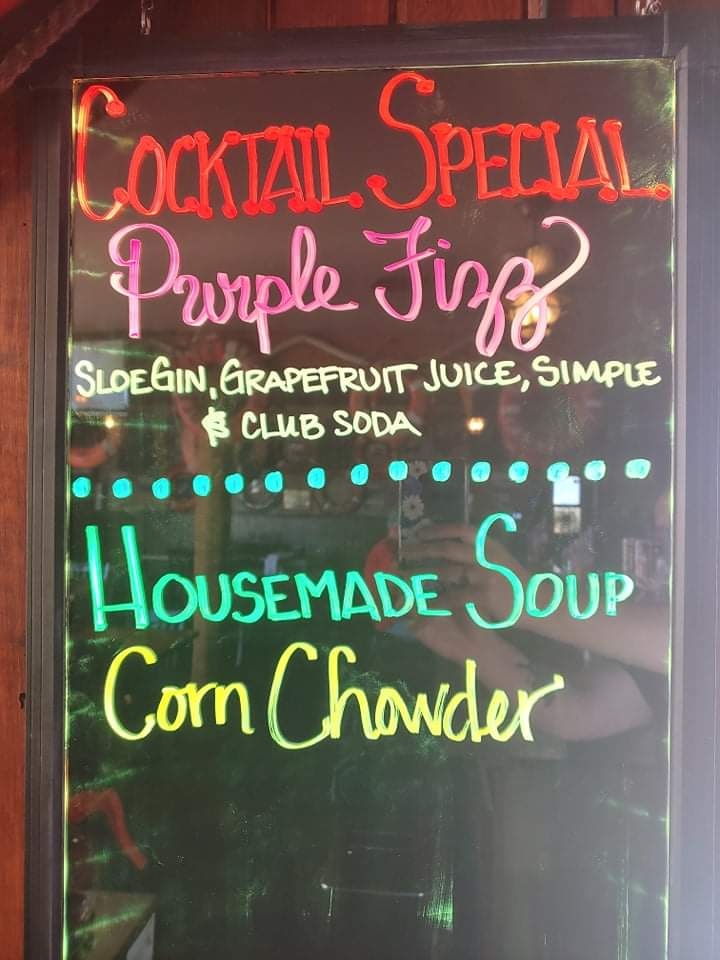 COCKTAIL SPECIAL
Purple Fizz
SLOE GIN, GRAPEFRUIT JUICE, SIMPLE
& CLUB SODA
HOUSEMADE SOUP
Corn Chowder